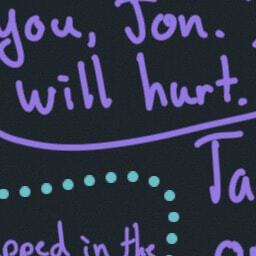 you, Jon.
will hurt.
Ta
pped in the